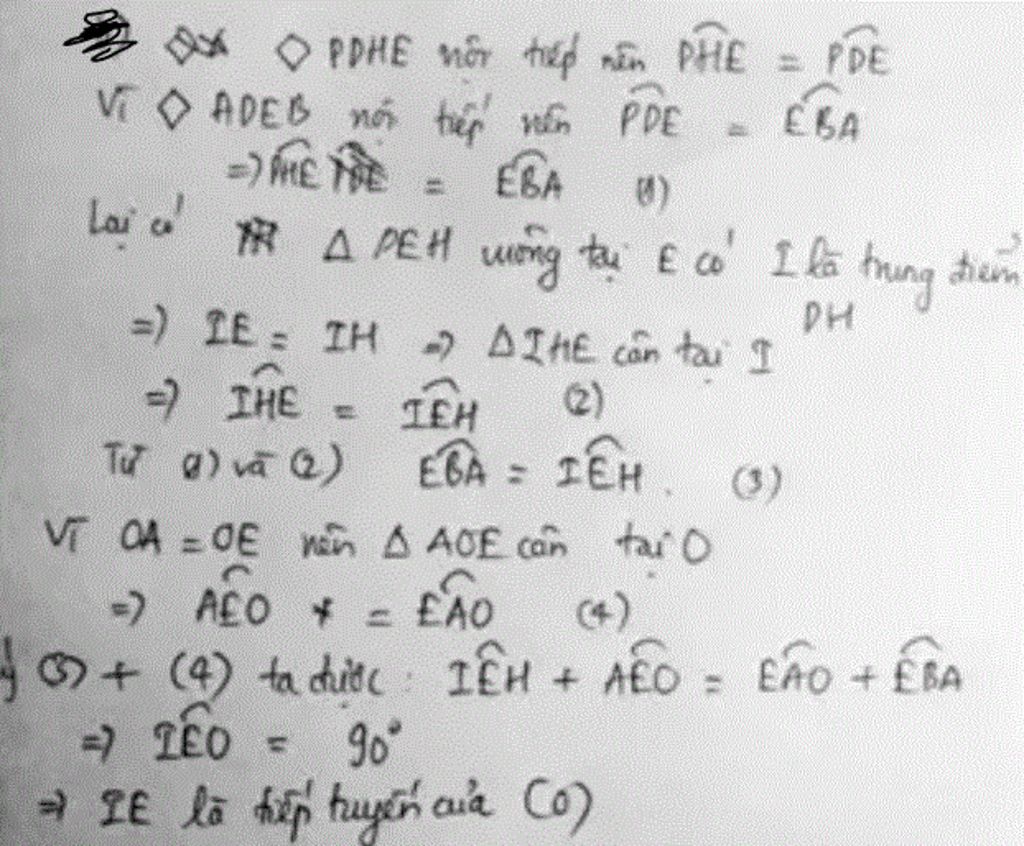 ◇ PDHE nội tiếp nên \widehat{PHE} = \widehat{PDE}
Vì ◇ ADEB nội tiếp nên \widehat{PDE} = \widehat{EBA}
=> \widehat{PHE} = \widehat{EBA} (1)
Lại có Δ PEH vuông tại E có I là trung điểm
PH
=> IE = IH => ΔIHE cân tại I
=> \widehat{IHE} = \widehat{IEH} (2)
Từ (1) và (2) \widehat{EBA} = \widehat{IEH}. (3)
Vì OA = OE nên Δ AOE cân tại O
=> \widehat{AEO} = \widehat{EAO} (4)
(3) + (4) ta được: \widehat{IEH} + \widehat{AEO} = \widehat{EAO} + \widehat{EBA}
=> \widehat{IEO} = 90°
=> IE là tiếp tuyến của (O)